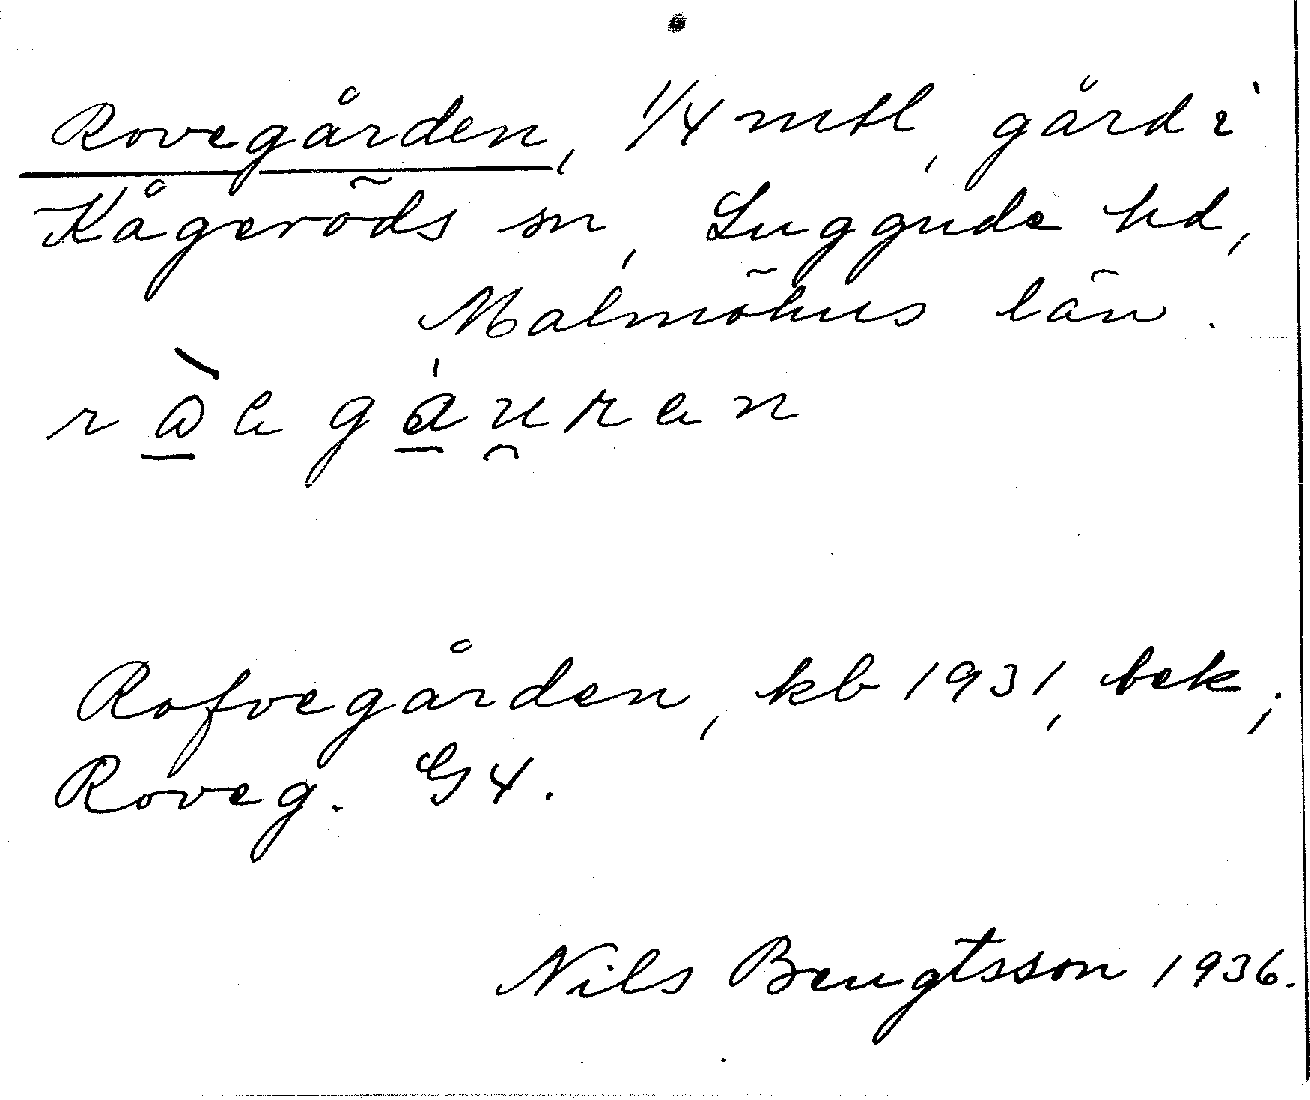 Rovegården, 1/4 mtl, gård i
Kågeröds sn, Luggude hd,
Malmöhus län.
Rofvegården, kb 1931, bek;
Roveg. G4.
Nils Bengtsson 1936.